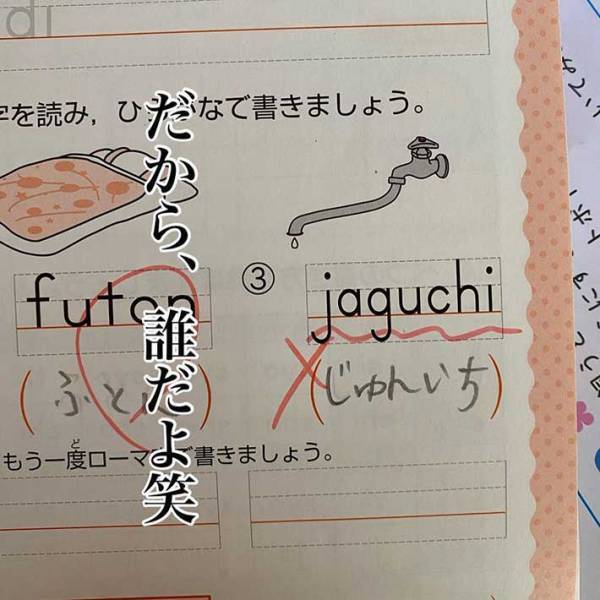 字を読み, ひらがなで書きましょう。
だから、誰だよ笑
futon
③
jaguchi
(ふとん)
(じゅんいち)
もう一度ローマ字で書きましょう。
ど